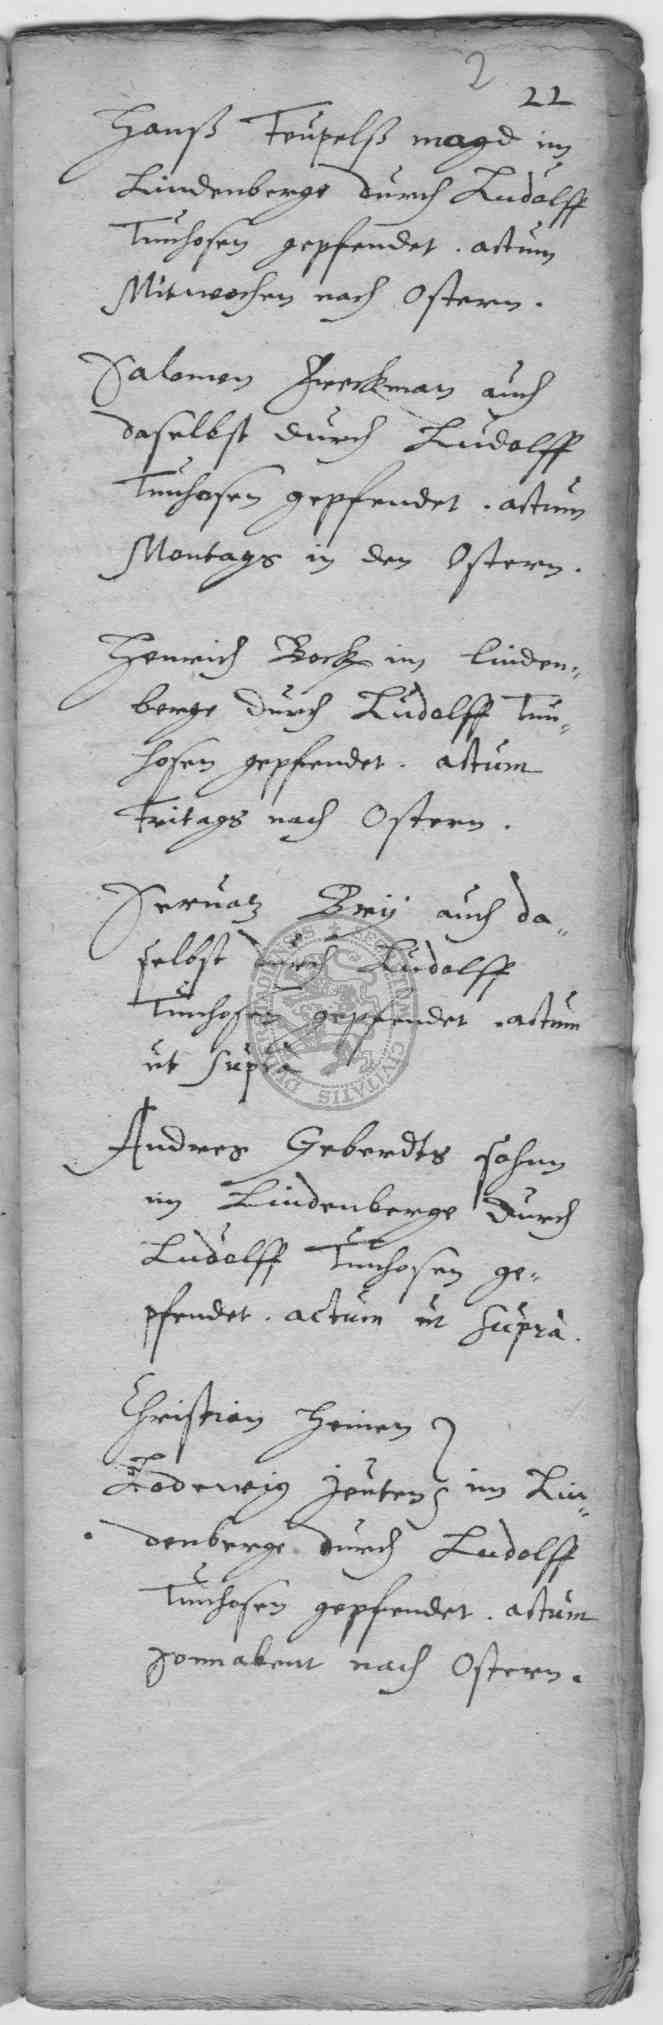 2
22
Hanß Teupelß magd im
Lindenberge durch Ludolff
Tunhosen gepfendet . actum
Mitwochen nach Ostern .
Salomon Zweckman auch
daselbst durch Ludolff
Tunhosen gepfendet . actum
Montags in den Ostern .
Henrich Bock im linden=
berge durch Ludolff Tun=
hosen gepfendet . actum
Fritags nach Ostern .
Seruatz Brij auch da=
selbst durch Ludolff
Tunhosen gepfendet . actum
ut supra
Andres Geberdts sohnn
im Lindenberge durch
Ludolff Tunhosen ge=
pfendet . actum ut supra .
Christian Heinen
Lodewig Jentens im Lin=
denberge durch Ludolff
Tunhosen gepfendet . actum
Sonnabent nach Ostern .